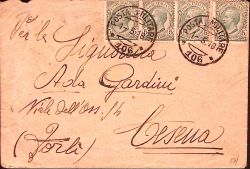 POSTA MILITARE
POSTA MILITARE
406
406
Per la
Signorina
Ada Gardini
Viale dell'Oss. 14
Cesena
(Forlì)